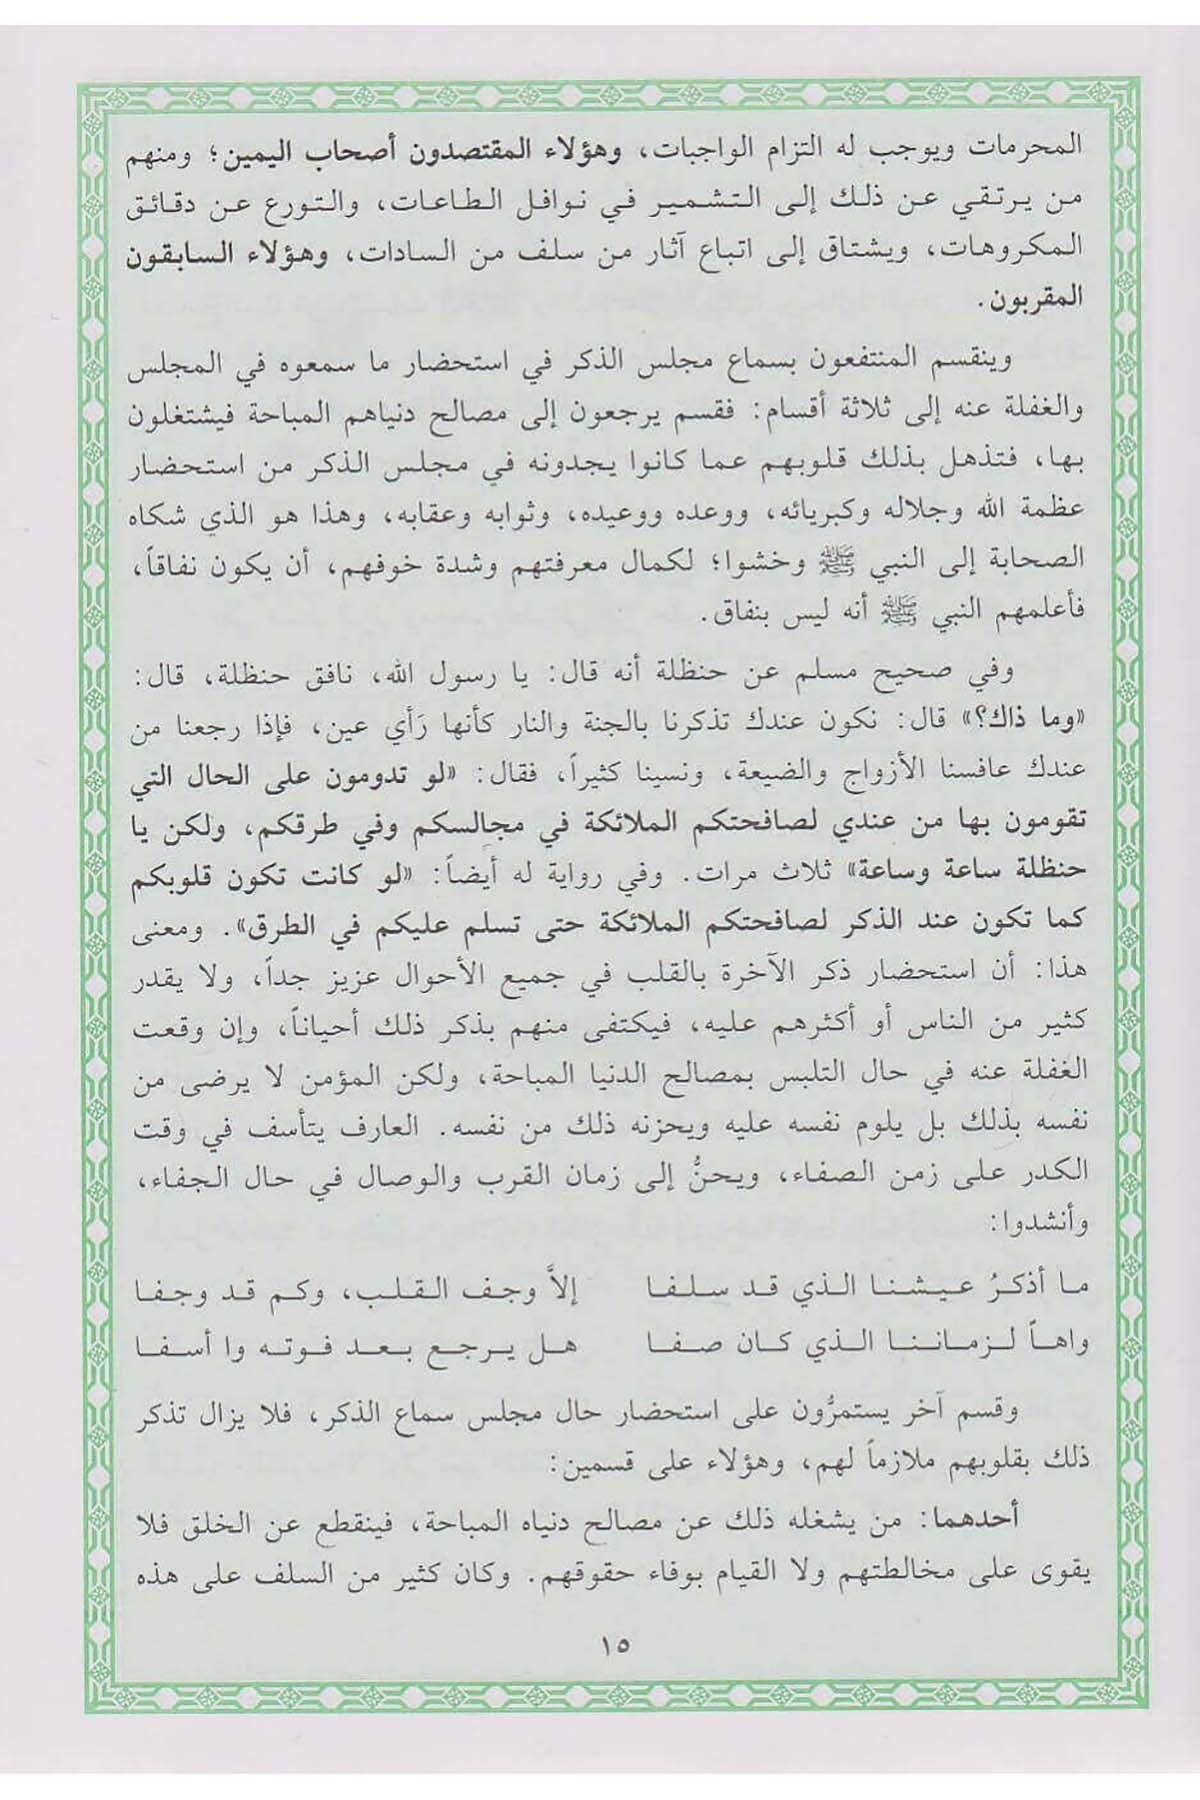 المحرمات ويوجب له التزام الواجبات، وهؤلاء المقتصدون أصحاب اليمين؛ ومنهم
من يرتقي عن ذلك إلى التشمير في نوافل الطاعات، والتورع عن دقائق
المكروهات، ويشتاق إلى اتباع آثار من سلف من السادات، وهؤلاء السابقون
المقربون.
وينقسم المنتفعون بسماع مجلس الذكر في استحضار ما سمعوه في المجلس
والغفلة عنه إلى ثلاثة أقسام: فقسم يرجعون إلى مصالح دنياهم المباحة فيشتغلون
بها، فتذهل بذلك قلوبهم عما كانوا يجدونه في مجلس الذكر من استحضار
عظمة الله وجلاله وكبريائه، ووعده ووعيده، وثوابه وعقابه، وهذا هو الذي شكاه
الصحابة إلى النبي ﷺ وخشوا؛ لكمال معرفتهم وشدة خوفهم، أن يكون نفاقاً،
فأعلمهم النبي ﷺ أنه ليس بنفاق.
وفي صحيح مسلم عن حنظلة أنه قال: يا رسول الله، نافق حنظلة، قال:
«وما ذاك؟» قال: نكون عندك تذكرنا بالجنة والنار كأنها رَأي عين، فإذا رجعنا من
عندك عافسنا الأزواج والضيعة، ونسينا كثيراً، فقال: «لو تدومون على الحال التي
تقومون بها من عندي لصافحتكم الملائكة في مجالسكم وفي طرقكم، ولكن يا
حنظلة ساعة وساعة» ثلاث مرات. وفي رواية له أيضاً: «لو كانت تكون قلوبكم
كما تكون عند الذكر لصافحتكم الملائكة حتى تسلم عليكم في الطرق». ومعنى
هذا: أن استحضار ذكر الآخرة بالقلب في جميع الأحوال عزيز جداً، ولا يقدر
كثير من الناس أو أكثرهم عليه، فيكتفى منهم بذكر ذلك أحياناً، وإن وقعت
الغفلة عنه في حال التلبس بمصالح الدنيا المباحة، ولكن المؤمن لا يرضى من
نفسه بذلك بل يلوم نفسه عليه ويحزنه ذلك من نفسه. العارف يتأسف في وقت
الكدر على زمن الصفاء، ويحنُّ إلى زمان القرب والوصال في حال الجفاء،
وأنشدوا:
ما أذكرُ عيشنا الذي قد سلفا إلاَّ وجف القلب، وكم قد وجفا
واهاً لزماننا الذي كان صفا هل يرجع بعد فوته وا أسفا
وقسم آخر يستمرُّون على استحضار حال مجلس سماع الذكر، فلا يزال تذكر
ذلك بقلوبهم ملازماً لهم، وهؤلاء على قسمين:
أحدهما: من يشغله ذلك عن مصالح دنياه المباحة، فينقطع عن الخلق فلا
يقوى على مخالطتهم ولا القيام بوفاء حقوقهم. وكان كثير من السلف على هذه
١٥